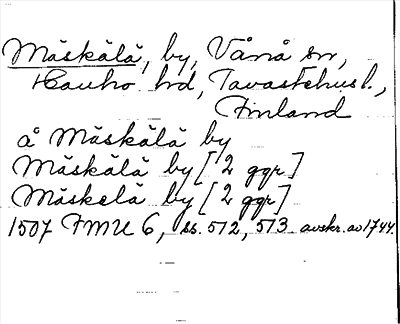 Mäskälä, by, Vånå sn,
Hauho hd, Tavastehus l.,
Finland
å Mäskälä by
Mäskälä by [2 ggr]
Mäskelä by [2 ggr]
1507 FMU 6, ss. 512, 513 avskr. av 1744.